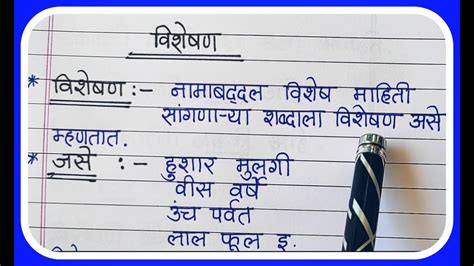 विशेषण
* विशेषण :- नामाबद्दल विशेष माहिती
सांगणाऱ्या शब्दाला विशेषण असे
म्हणतात.
* जसे :- हुशार मुलगी
वीस वर्षे
उंच पर्वत
लाल फूल इ.